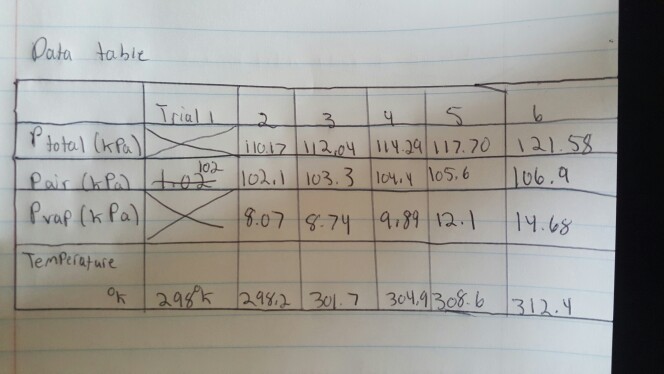 Data table
Trial 1 2 3 4 5 6
Ptotal (kPa) 110.17 112.04 114.29 117.70 121.58
Pair (kPa) 1.02 102 102.1 103.3 104.4 105.6 106.9
Pvap (kPa) 8.07 8.74 9.89 12.1 14.68
Temperature
°K 298°K 298.2 301.7 304.9 308.6 312.4